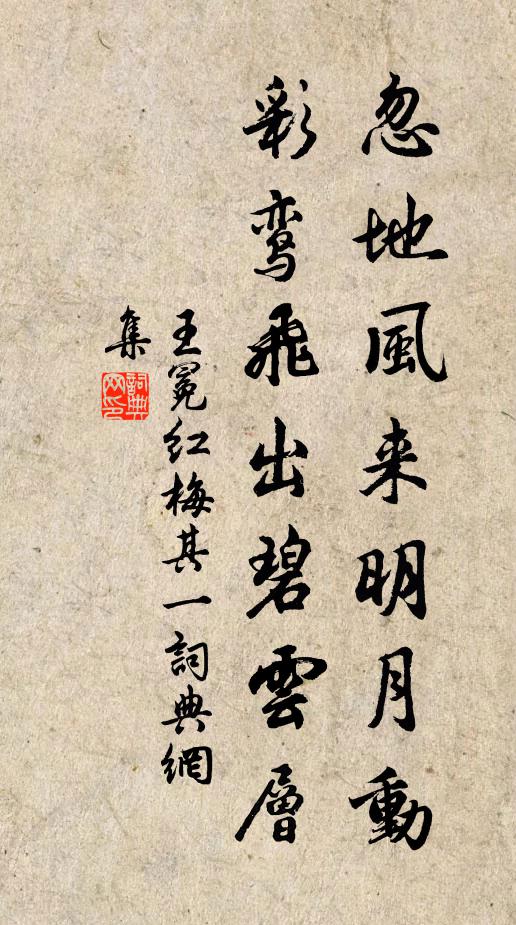 忽地風来明月動
彩鸾飛出碧雲層
王冕红梅其一詞典網
集
詞典网印